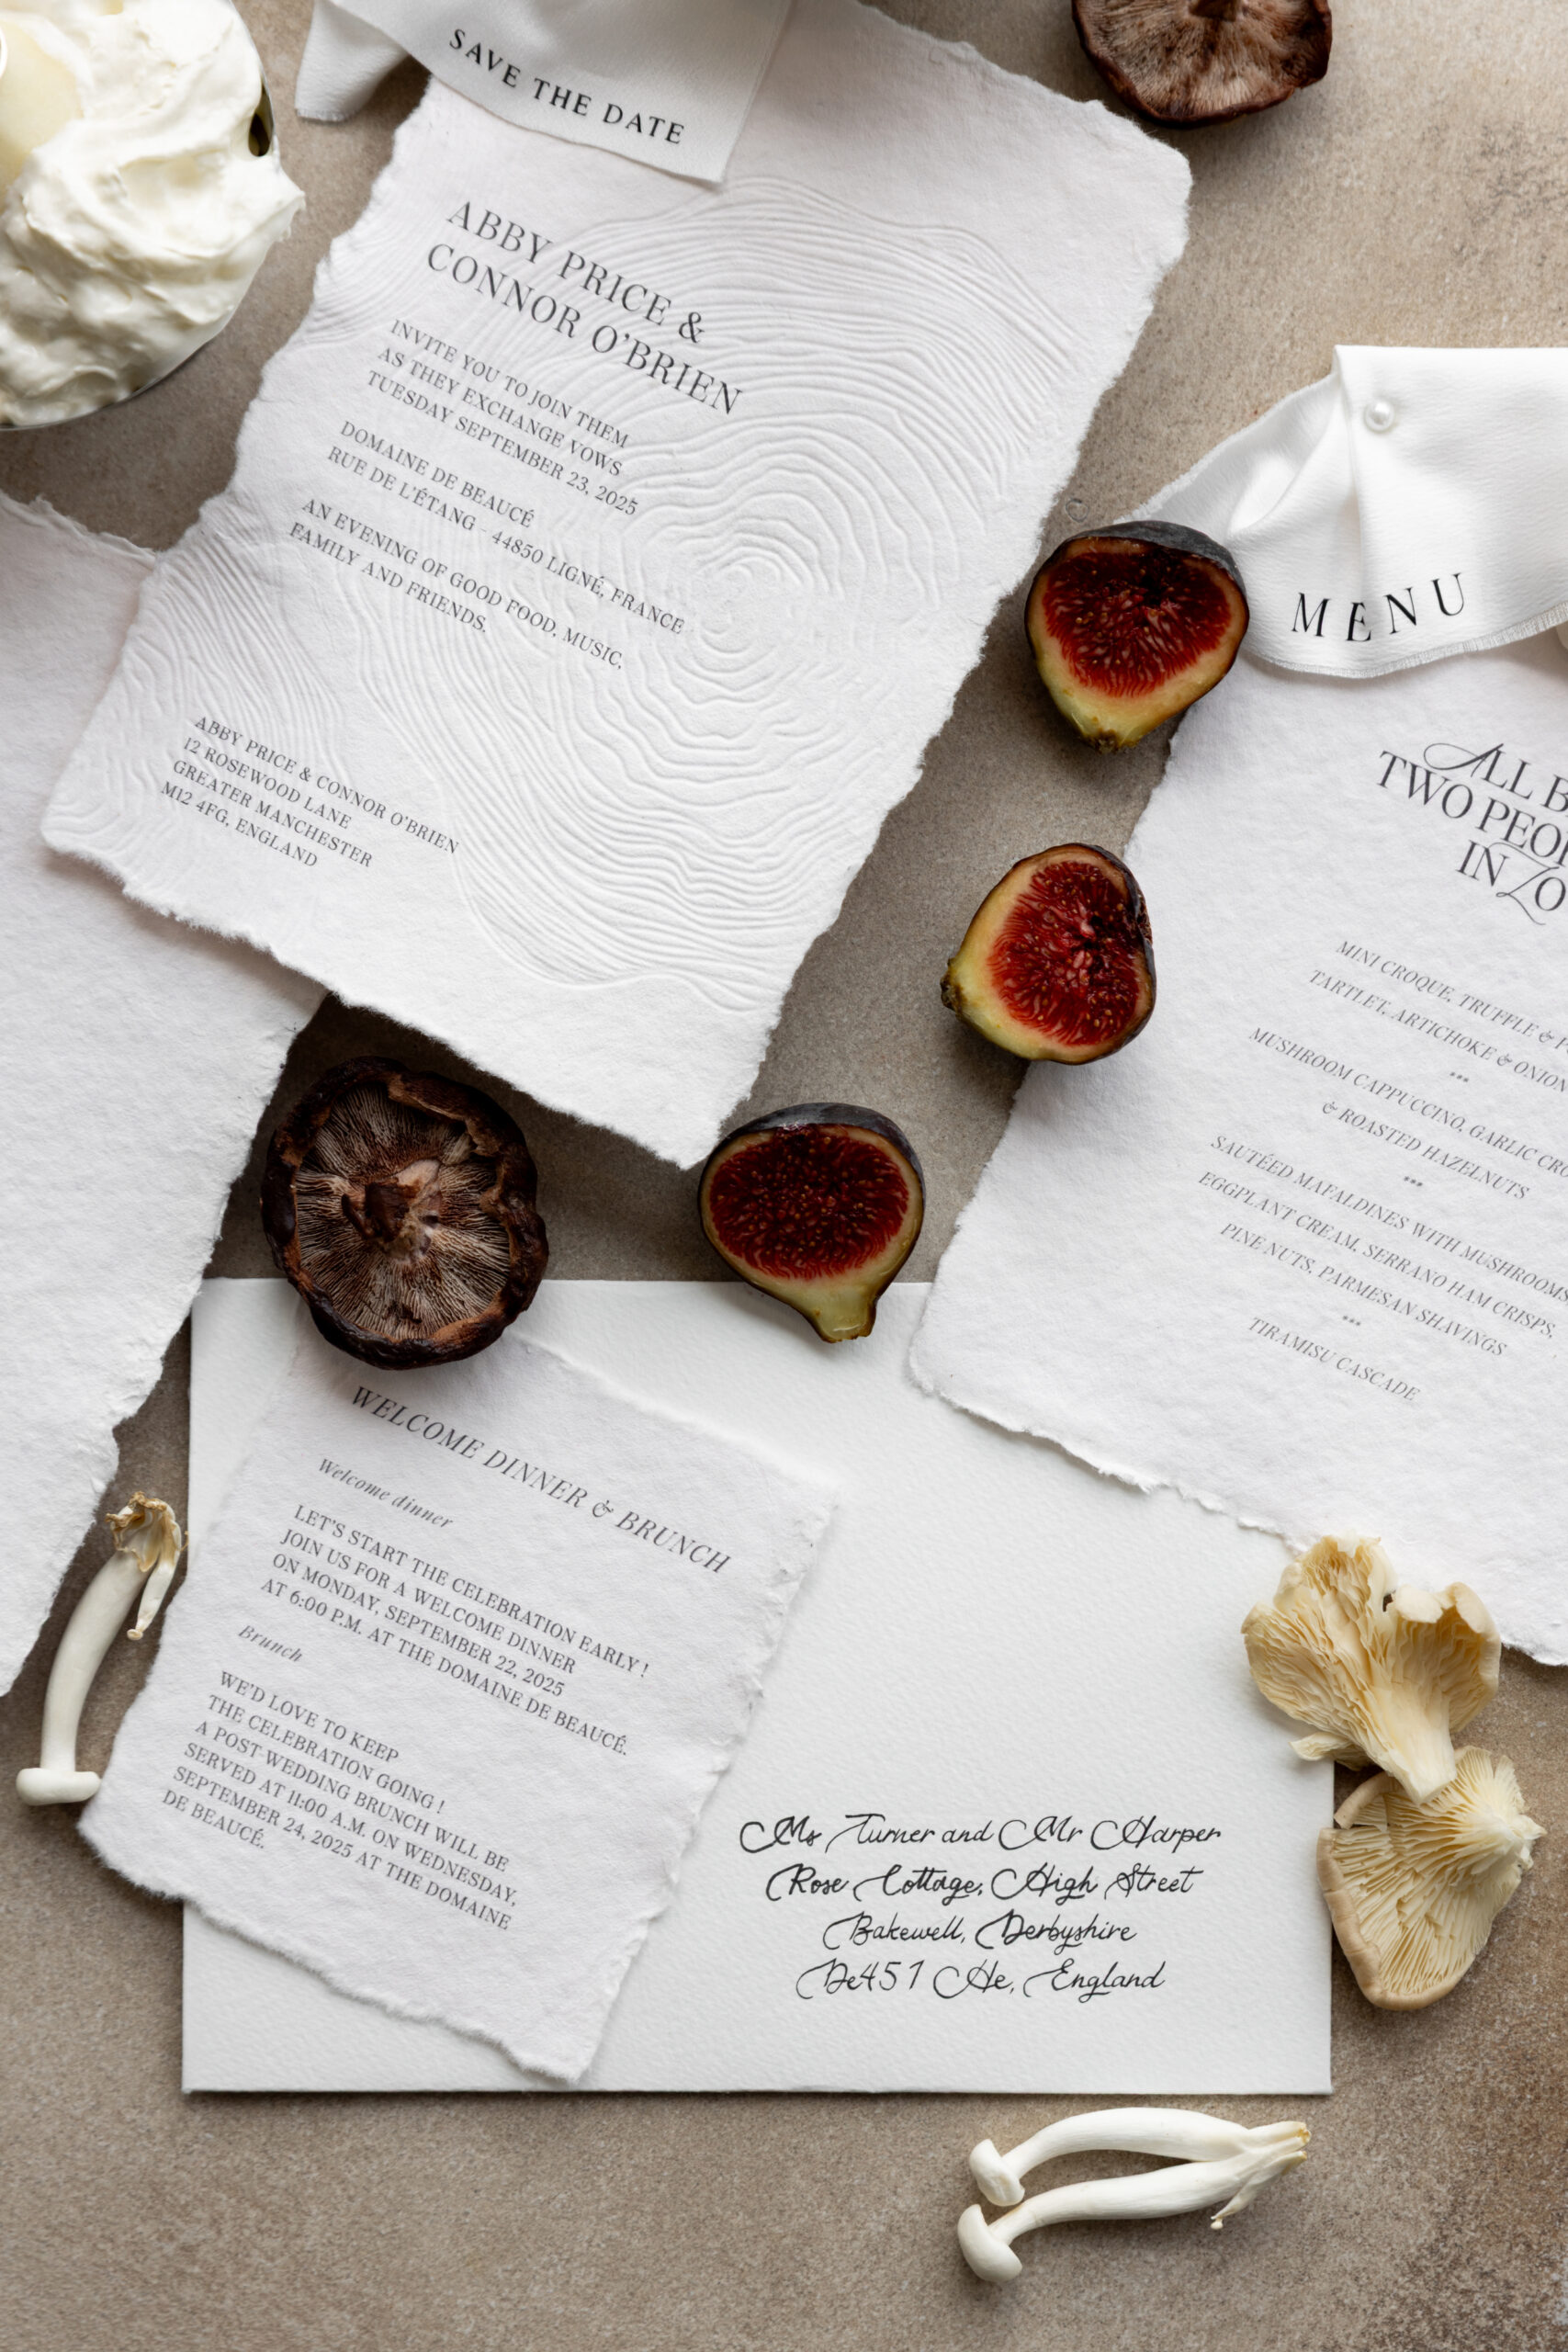 SAVE THE DATE
ABBY PRICE &
CONNOR O'BRIEN
INVITE YOU TO JOIN THEM
AS THEY EXCHANGE VOWS
TUESDAY SEPTEMBER 23, 2025
DOMAINE DE BEAUCÉ
RUE DE L'ÉTANG - 44850 LIGNÉ, FRANCE
AN EVENING OF GOOD FOOD, MUSIC,
FAMILY AND FRIENDS.
ABBY PRICE & CONNOR O'BRIEN
12 ROSEWOOD LANE
GREATER MANCHESTER
M12 4FG, ENGLAND
MENU
ALL
TWO
IN
MINI CROQUE, TRUFFLE &
TARTLET, ARTICHOKE & ONION
***
MUSHROOM CAPPUCCINO, GARLIC
& ROASTED HAZELNUTS
***
SAUTÉED MAFALDINES WITH MUSHROOMS
EGGPLANT CREAM, SERRANO HAM CRISPS,
PINE NUTS, PARMESAN SHAVINGS
***
TIRAMISU CASCADE
WELCOME DINNER & BRUNCH
Welcome dinner
LET'S START THE CELEBRATION EARLY !
JOIN US FOR A WELCOME DINNER
ON MONDAY, SEPTEMBER 22, 2025
AT 6:00 P.M. AT THE DOMAINE DE BEAUCÉ.
Brunch
WE'D LOVE TO KEEP
THE CELEBRATION GOING !
A POST-WEDDING BRUNCH WILL BE
SERVED AT 11:00 A.M. ON WEDNESDAY,
SEPTEMBER 24, 2025 AT THE DOMAINE
DE BEAUCÉ.
Ms Turner and Mr Harper
Rose Cottage, High Street
Bakewell, Derbyshire
De45 1 He, England